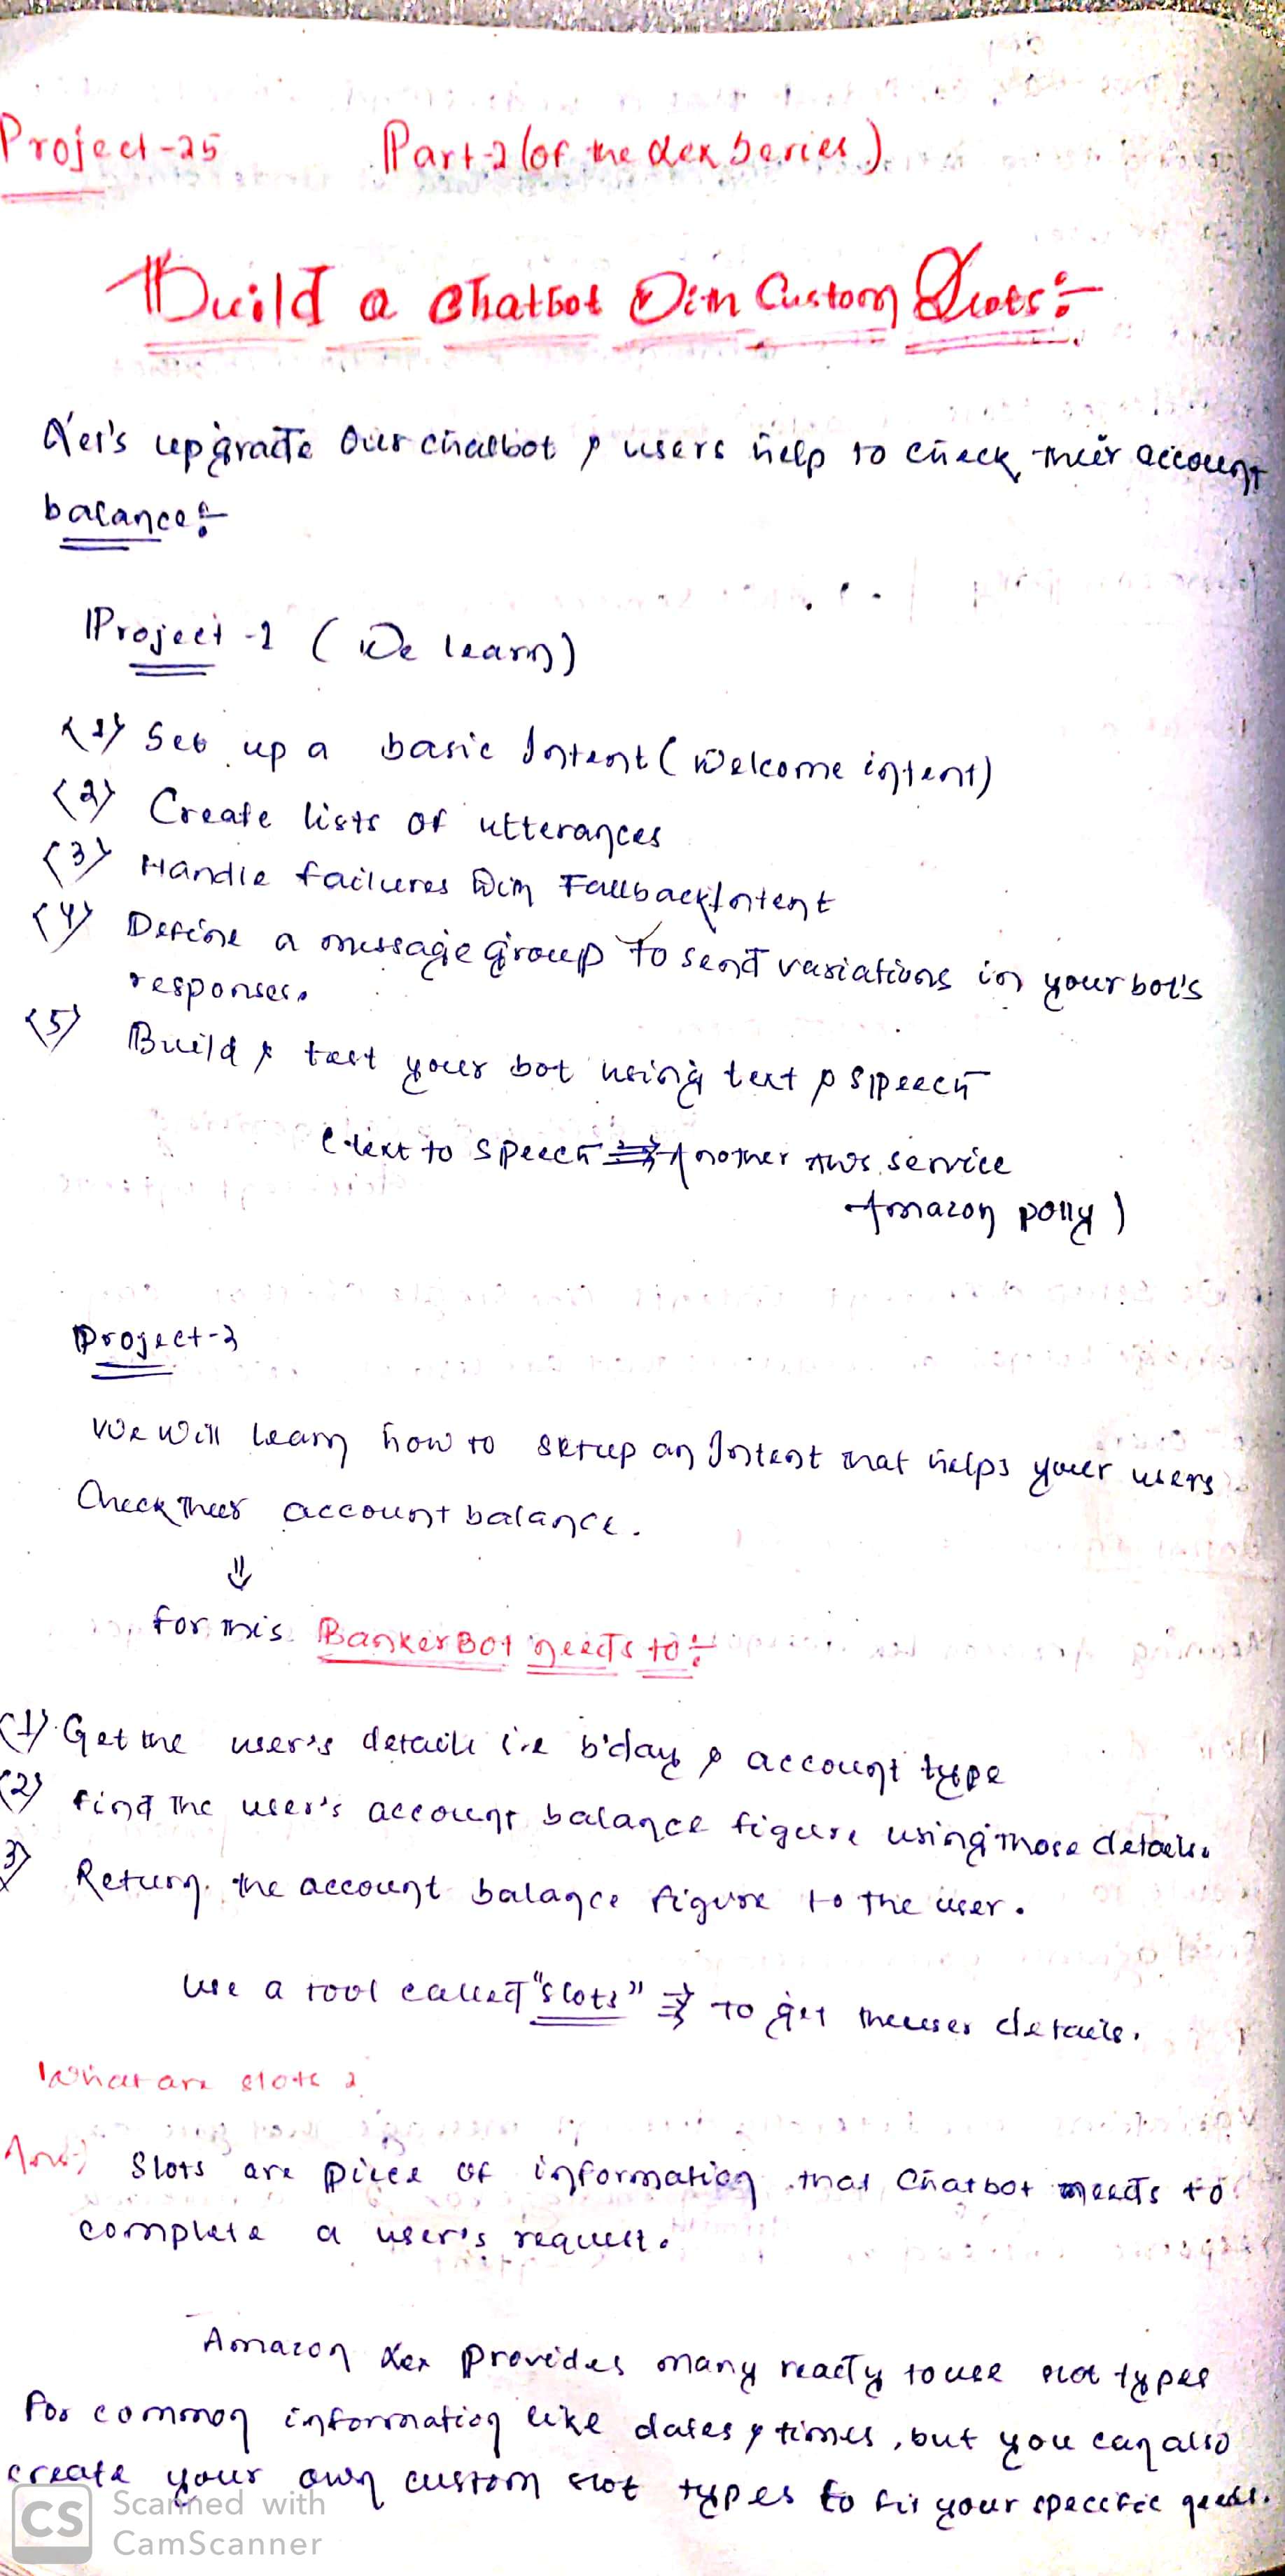 Project-25 Part-2 (of the Lex Series)
Build a Chatbot With Custom Slots:-
Let's upgrade our chatbot & users help to check their account
balance:-
Project-1 (We learn)
(1) Set up a basic Intent (Welcome intent)
(2) Create lists of utterances
(3) Handle failures With FallbackIntent
(4) Define a message group to send variations in your bot's
responses.
(5) Build & test your bot using text & speech
(text to speech => Another AWS service
Amazon polly)
Project-2
We Will learn how to setup an Intent that helps your users
Check their account balance.
⇓
for this BankerBot needs to:-
(1) Get the user's details i.e b'day & account type
(2) find the user's account balance figure using those details.
3) Return the account balance figure to the user.
Use a tool called "slots" => To get the user details.
What are slots ?
Ans:) Slots are piece of information that Chatbot needs to
complete a user's request.
Amazon Lex Provides many ready to use slot types
for common information like dates & times, but you can also
create your own custom slot types to fit your specific needs.
CS Scanned with
CamScanner